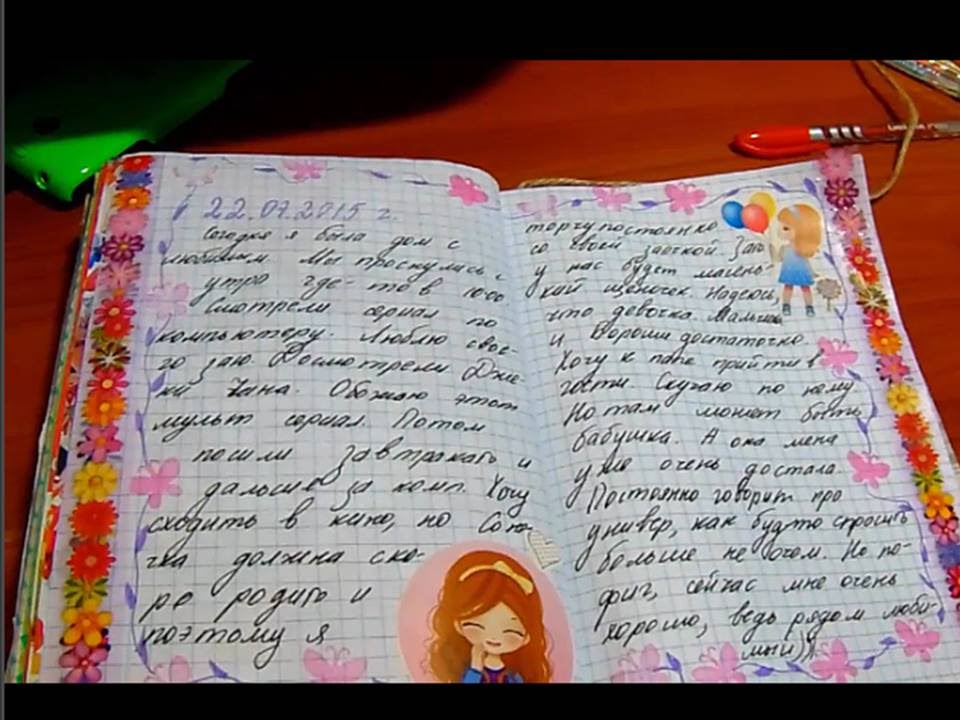 22.07.2015 г.
Сегодня я была дом с
любимым. Мы проснулись с
утра где-то в 10:00
Смотрели сериал по
компьютеру. Люблю свое-
го заю. Досмотрели Дже-
ки Чана. Обожаю этот
мульт сериал. Потом
пошли завтракать и
дальше за комп. Хочу
сходить в кино, но Соне-
чка должна ско-
ро родить и
поэтому я
торчу постоянно
со своей заечкой. Зато
у нас будет малень-
кий щеночек. Надеюсь,
что девочка. Мальчика
и Вороши достаточно.
Хочу к папе прийти в
гости. Скучаю по нему
Но там может быть
бабушка. А она меня
уже очень достала.
Постоянно говорит про
универ, как будто спросить
больше не очем. Но по-
фиг, сейчас мне очень
хорошо, ведь рядом люби-
мый))